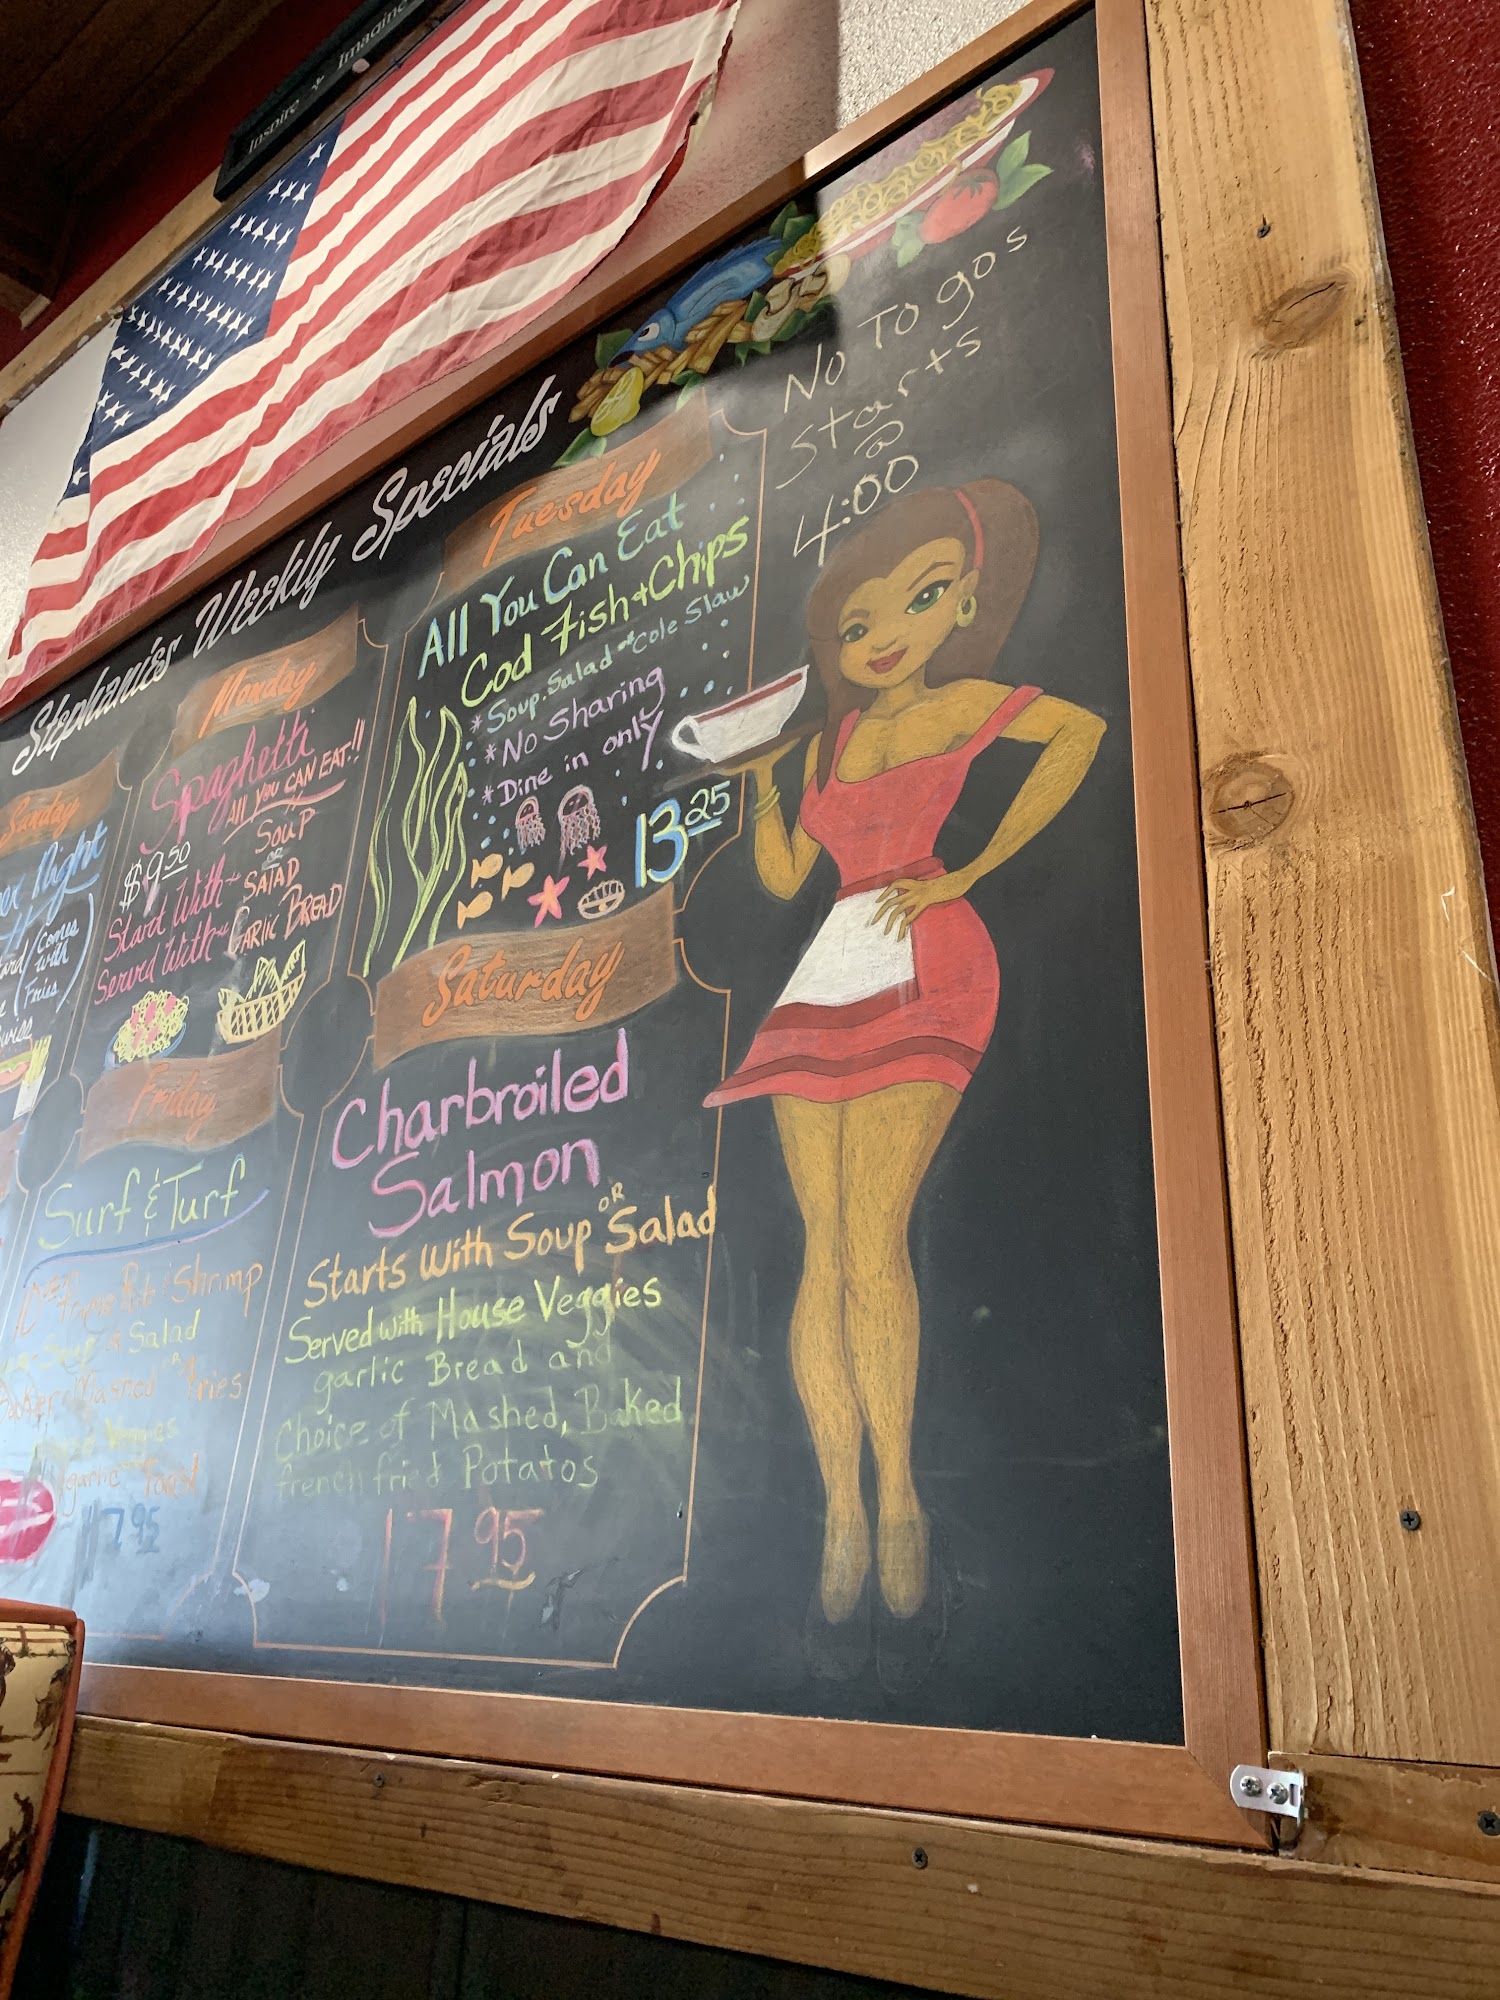 Inspire Imagine
Stephanie's Weekly Specials
Sunday
Night
Comes
with
Fries
Monday
Spaghetti
All you CAN EAT!!
$9.50
Soup
OR
Start With SALAD
Served With Garlic Bread
Tuesday
All You Can Eat
Cod Fish & Chips
* Soup. Salad or Cole Slaw
* No Sharing
* Dine in only
13.25
No To gos
starts
@
4:00
Friday
Surf & Turf
Shrimp
Soup or Salad
Mashed OR Fries
Veggies
garlic Toast
17.95
Saturday
Charbroiled
Salmon
Starts With Soup OR Salad
Served with House Veggies
garlic Bread and
Choice of Mashed, Baked
french fried Potatos
17.95